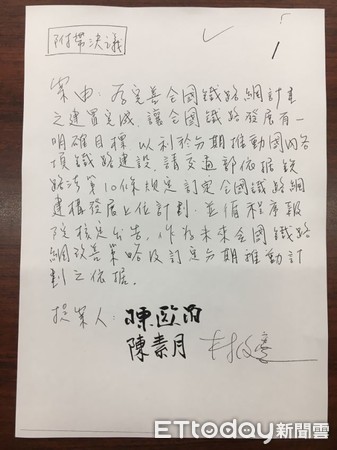 附帶決議
案由：為完善全國鐵路網計畫
之建置完成，讓全國鐵路發展有一
明確目標，以利於分期推動國內各
項鐵路建設，請交通部依據鐵
路法第10條規定訂定全國鐵路網
建構發展上位計劃，並循程序報
院核定公告，作為未來全國鐵路
網改善策略及訂定分期推動計
劃之依據。
提案人：陳歐珀
陳素月
ETtoday新聞雲